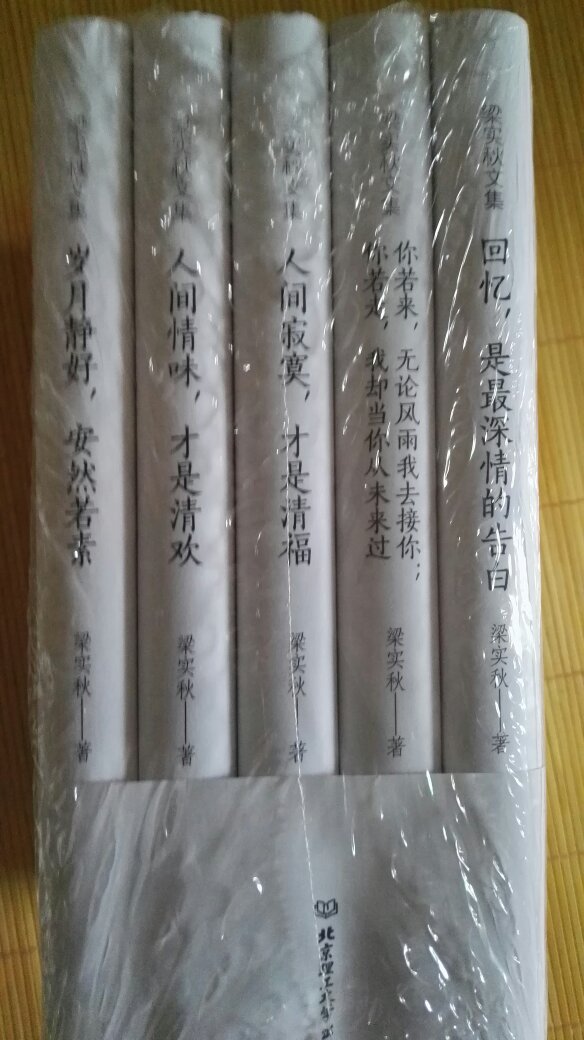 梁实秋文集
岁月静好，安然若素
梁实秋——著
梁实秋文集
人间情味，才是清欢
梁实秋——著
梁实秋文集
人间寂寞，才是清福
梁实秋——著
梁实秋文集
你若来，无论风雨我去接你；
你若走，我却当你从未来过
梁实秋——著
梁实秋文集
回忆，是最深情的告白
梁实秋——著
北京理工大学出